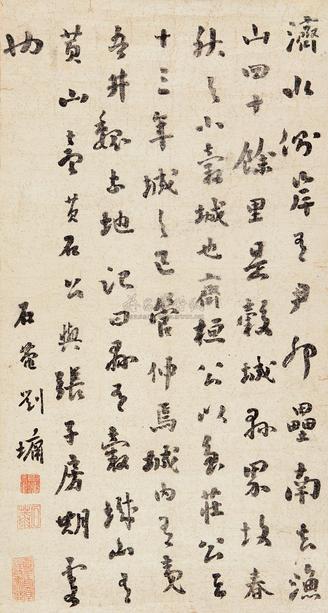 濟水側岸有尹卯壘南去漁
山四十餘里是穀城縣界故春
秋之小穀城也齊桓公以魯莊公二
十三年城之邑管仲焉城内有夷
吾井魏土地記曰縣有穀城山有
黃山臺黃石公與張子房期處
也
石菴劉墉